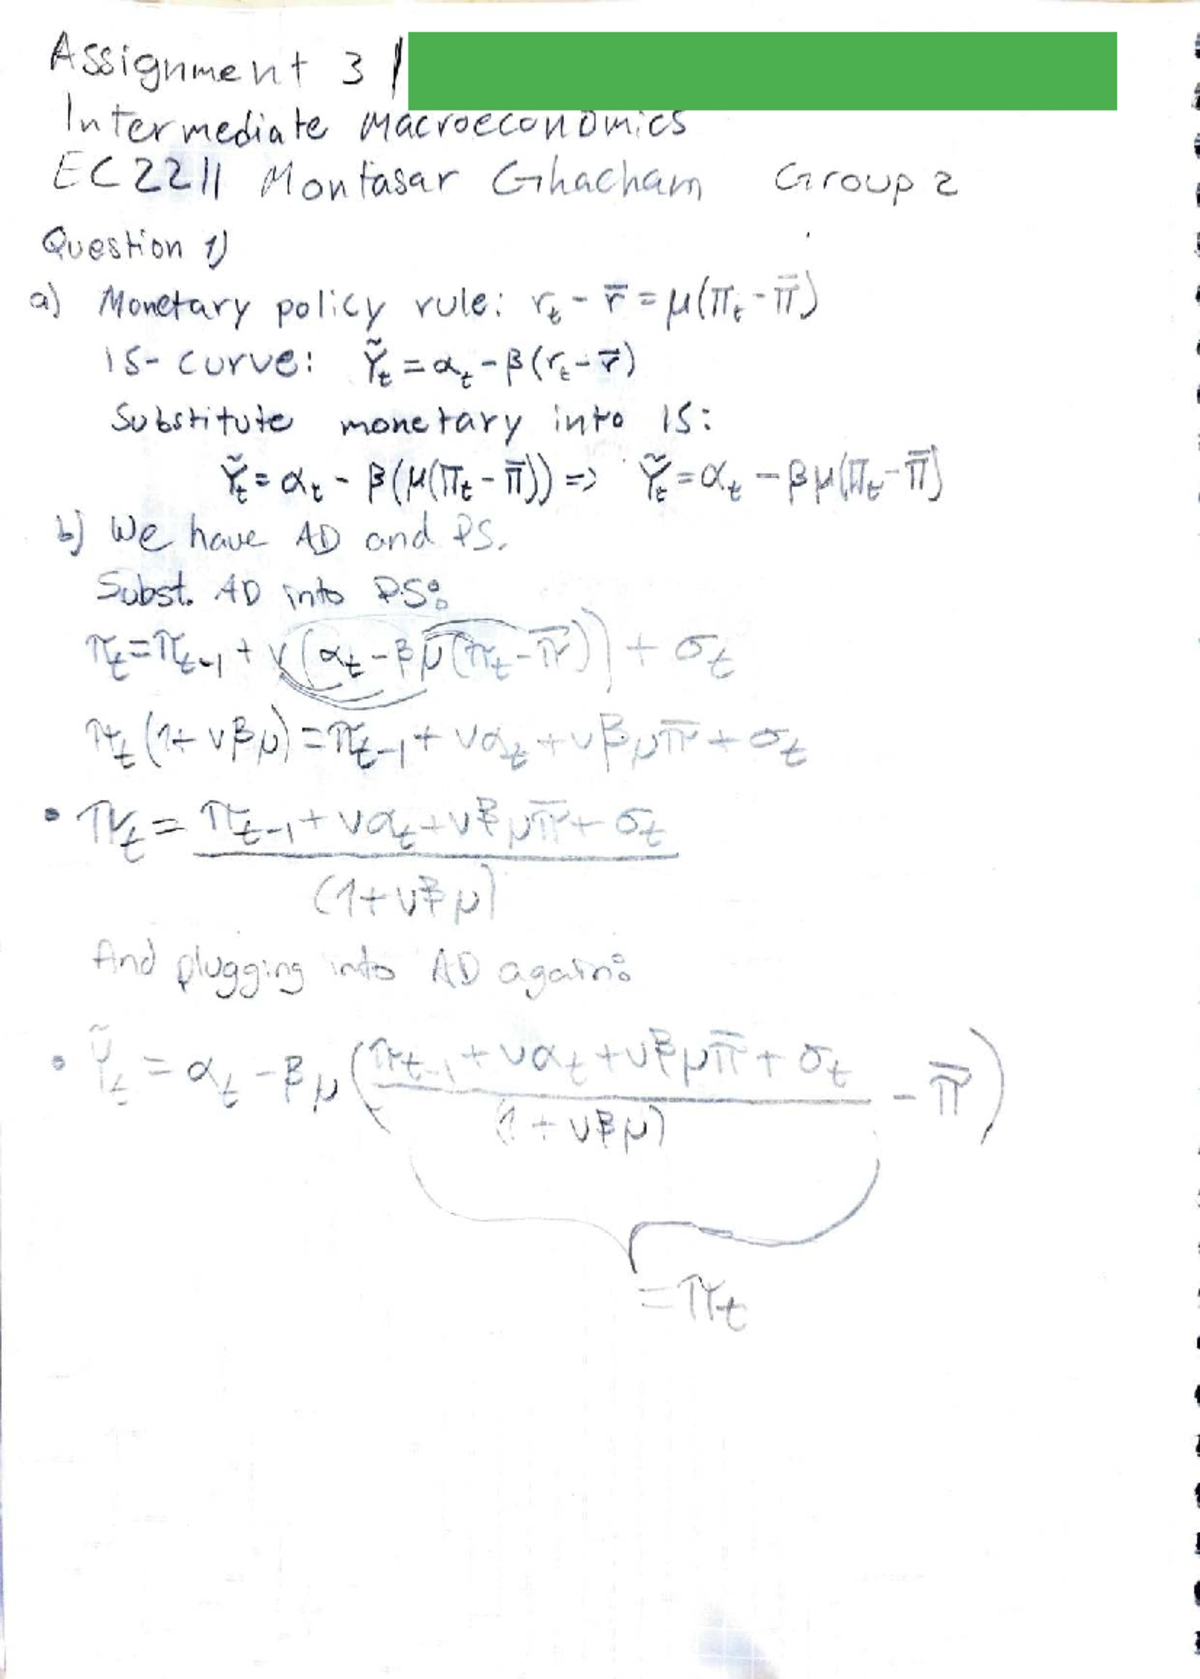 Assignment 3 /
Intermediate Macroeconomics
EC2211 Montasar Ghacham Group 2
Question 1)
a) Monetary policy rule: r_t - r̄ = μ(π_t - π̄)
IS-curve: Ỹ_t = α_t - β(r_t - r̄)
Substitute monetary into IS:
Ỹ_t = α_t - β(μ(π_t - π̄)) => Ỹ_t = α_t - βμ(π_t - π̄)
b) We have AD and PS.
Subst. AD into PS:
π_t = π_t-1 + v(α_t - βμ(π_t - π̄)) + σ_t
π_t (1 + vβμ) = π_t-1 + vα_t + vβμπ̄ + σ_t
• π_t = π_t-1 + vα_t + vβμπ̄ + σ_t
(1 + vβμ)
And plugging into AD again:
• Ỹ_t = α_t - βμ(π_t-1 + vα_t + vβμπ̄ + σ_t - π̄)
(1 + vβμ)
= π_t